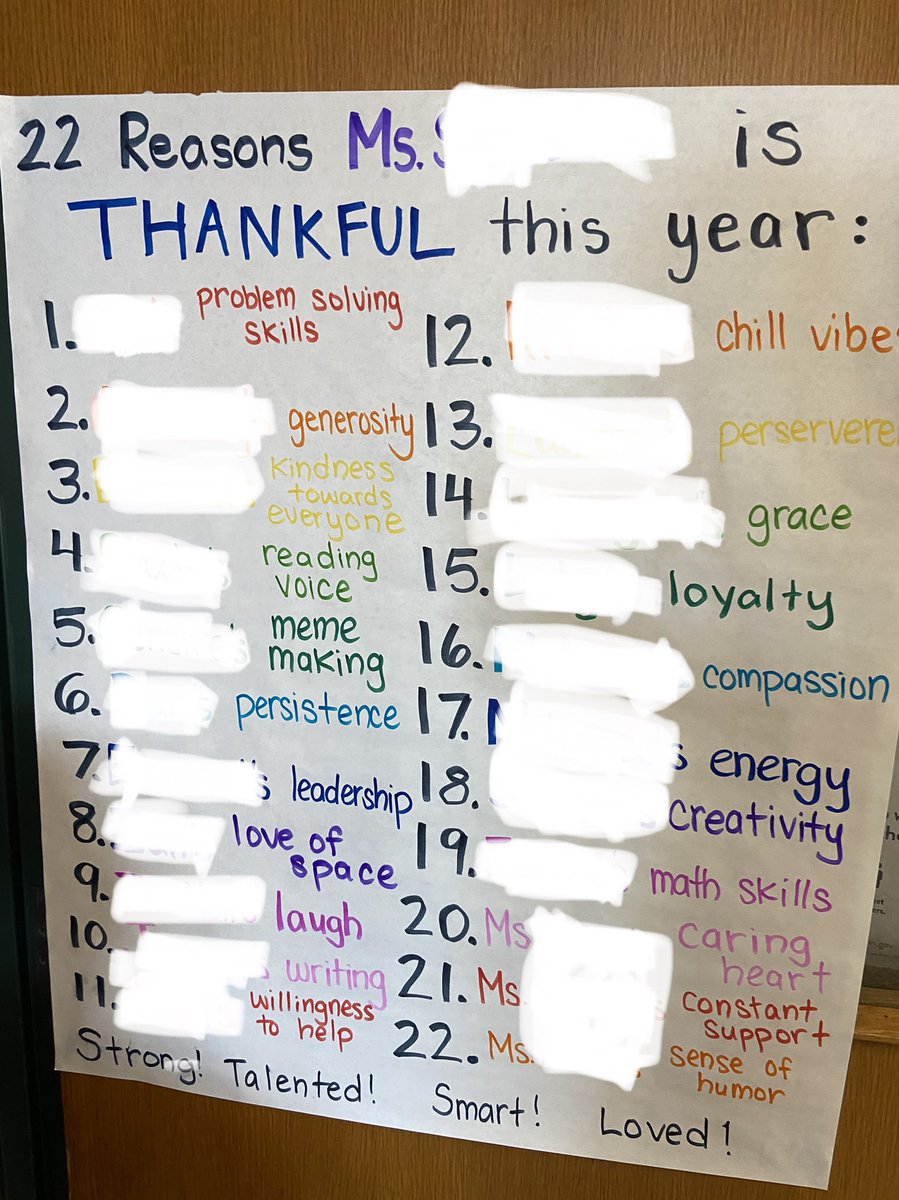 22 Reasons Ms. is
THANKFUL this year:
1. problem solving
skills
2. generosity
3. kindness
towards
everyone
4. reading
voice
5. meme
making
6. persistence
7. leadership
8. love of
space
9. laugh
10. writing
11. willingness
to help
12. chill vibes
13. perservere
14. grace
15. loyalty
16. compassion
17. energy
18. creativity
19. math skills
20. Ms. caring
heart
21. Ms. constant
support
22. Ms. sense of
humor
Strong! Talented! Smart! Loved!